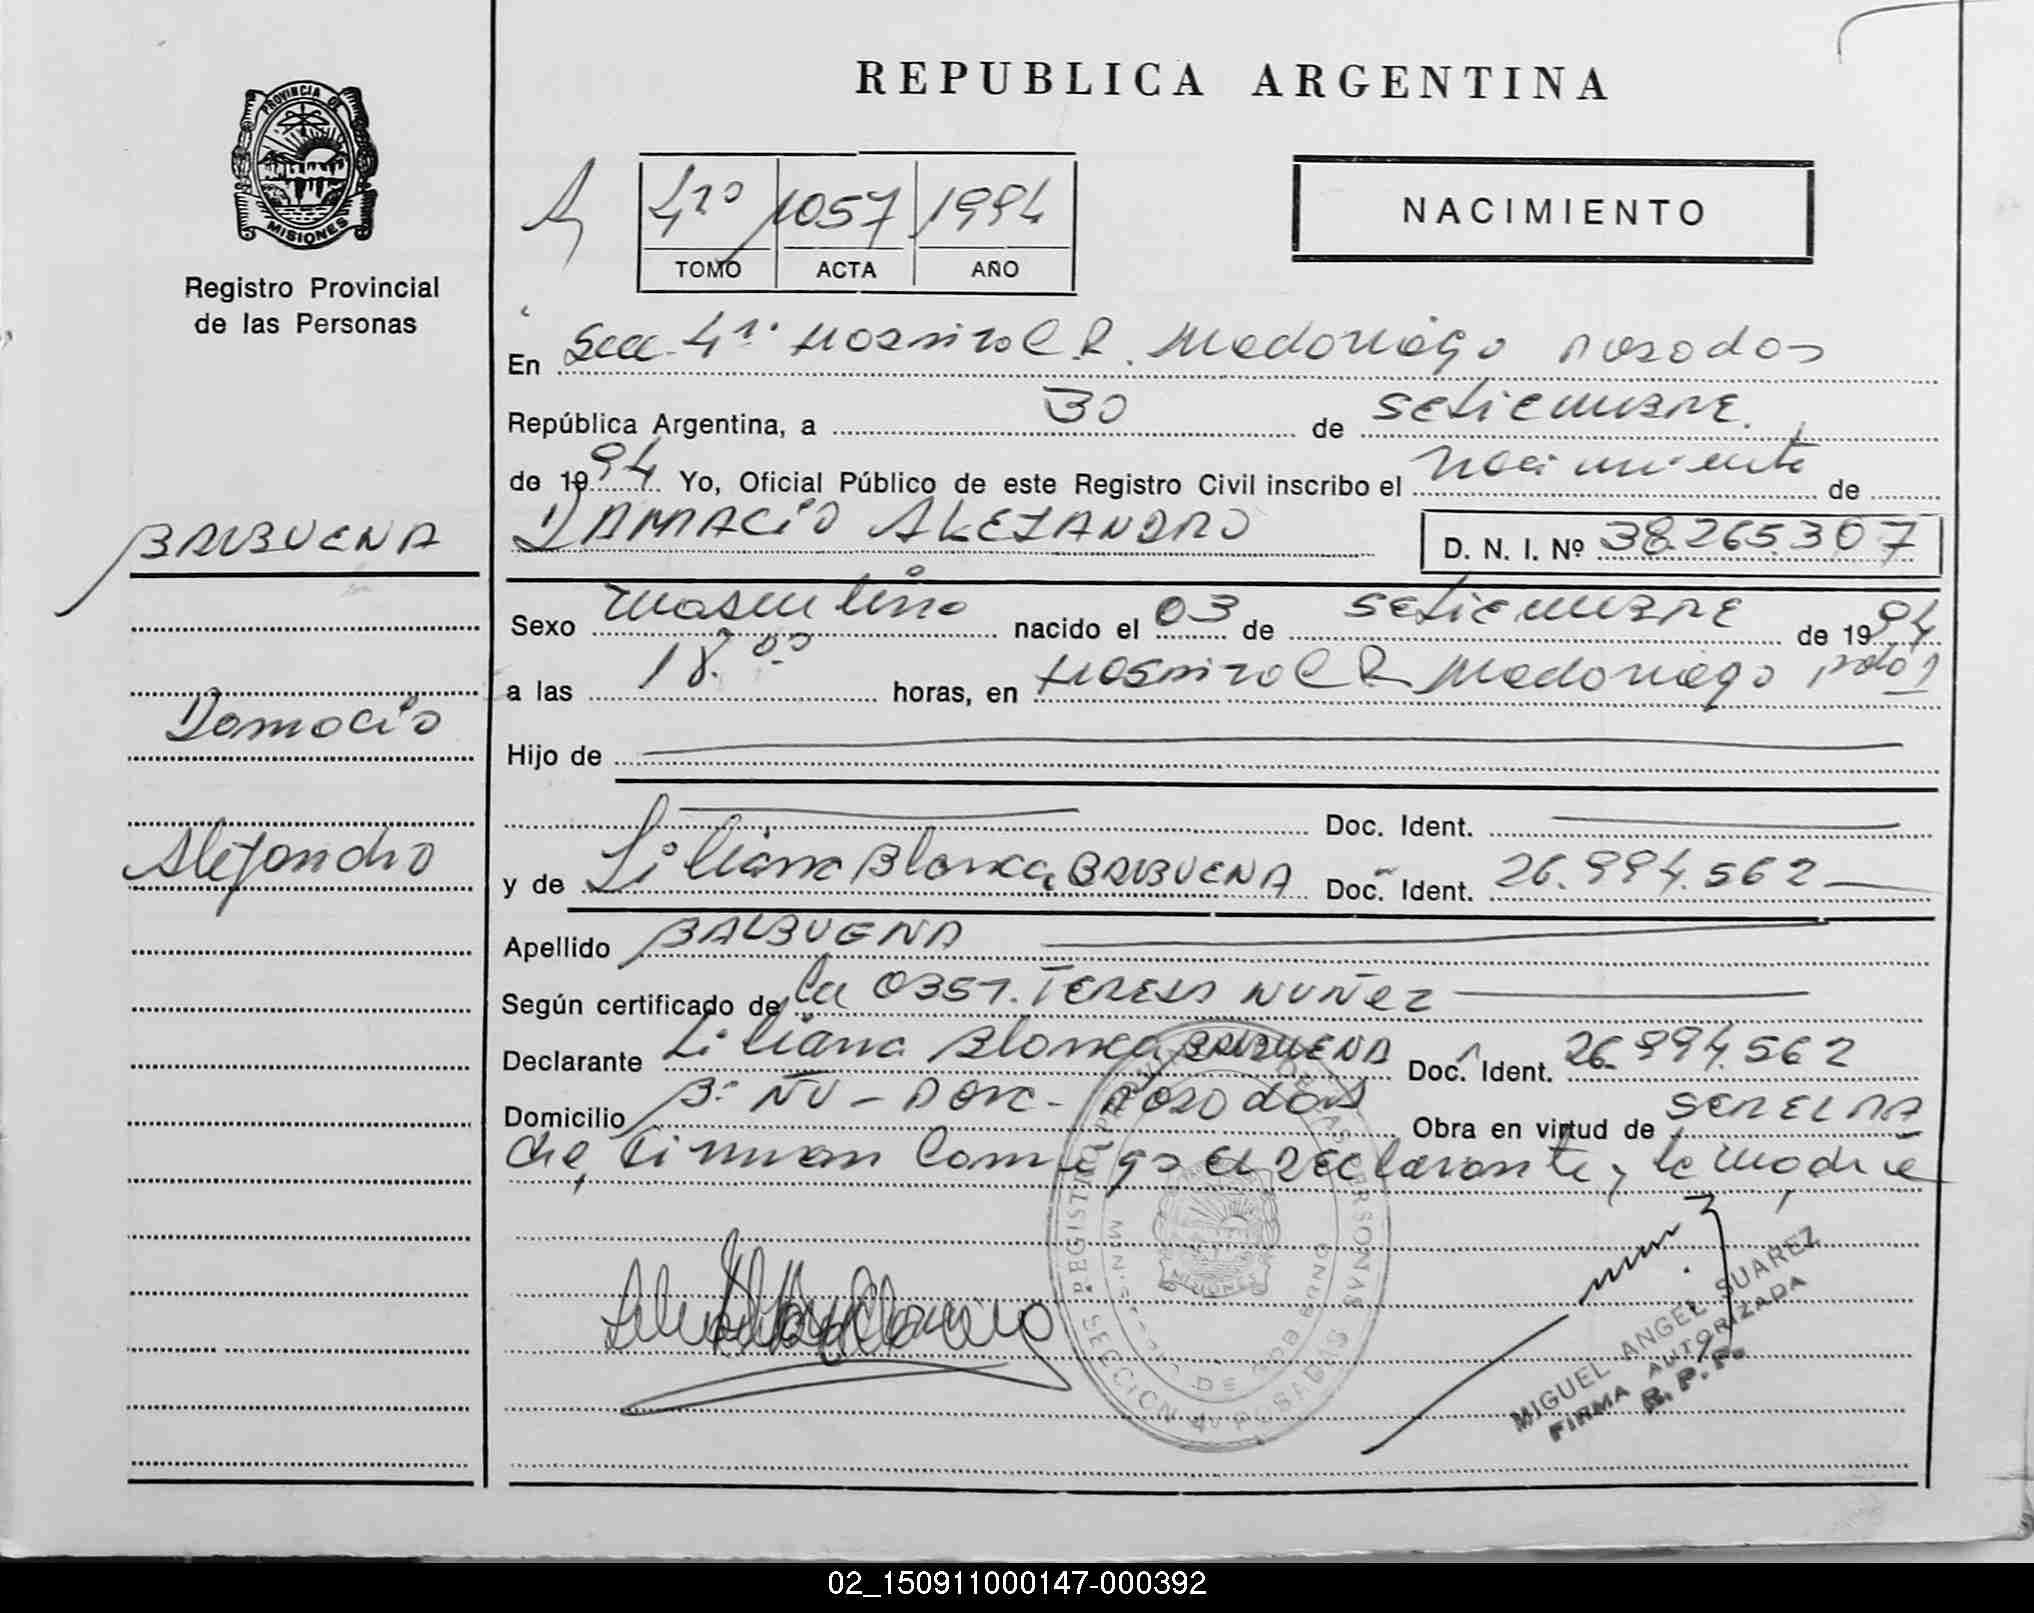 REPUBLICA ARGENTINA
PROVINCIA DE
MISIONES
Registro Provincial
de las Personas
4to 1057 1994
TOMO ACTA AÑO
NACIMIENTO
En Secc. 4ta. Hospital R. Madariaga Posadas
República Argentina, a 30 de SETIEMBRE.
de 1994 Yo, Oficial Público de este Registro Civil inscribo el nacimiento de
BALBUENA
DAMACIO ALEJANDRO D. N. I. Nº 38.265.307
Sexo masculino nacido el 03 de SETIEMBRE de 1994
a las 18.00 horas, en Hospital R Madariaga
Damacio
Hijo de
Doc. Ident.
Alejandro
y de Liliana Blanca BALBUENA Doc. Ident. 26.994.562
Apellido BALBUENA
Según certificado de la OBST. TERESA NUÑEZ
Declarante Liliana Blanca BALBUENA Doc. Ident. 26.994.562
Domicilio Bº ÑU - PORÁ - Posadas Obra en virtud de SER EL
firman conmigo el DEclarante, la madre
REGISTRO PROVINCIAL DE LAS PERSONAS
MINISTERIO DE GOBIERNO
MISIONES
SECCION 4º POSADAS
MIGUEL ANGEL SUAREZ
FIRMA AUTORIZADA
R. P. P.
02_150911000147-000392